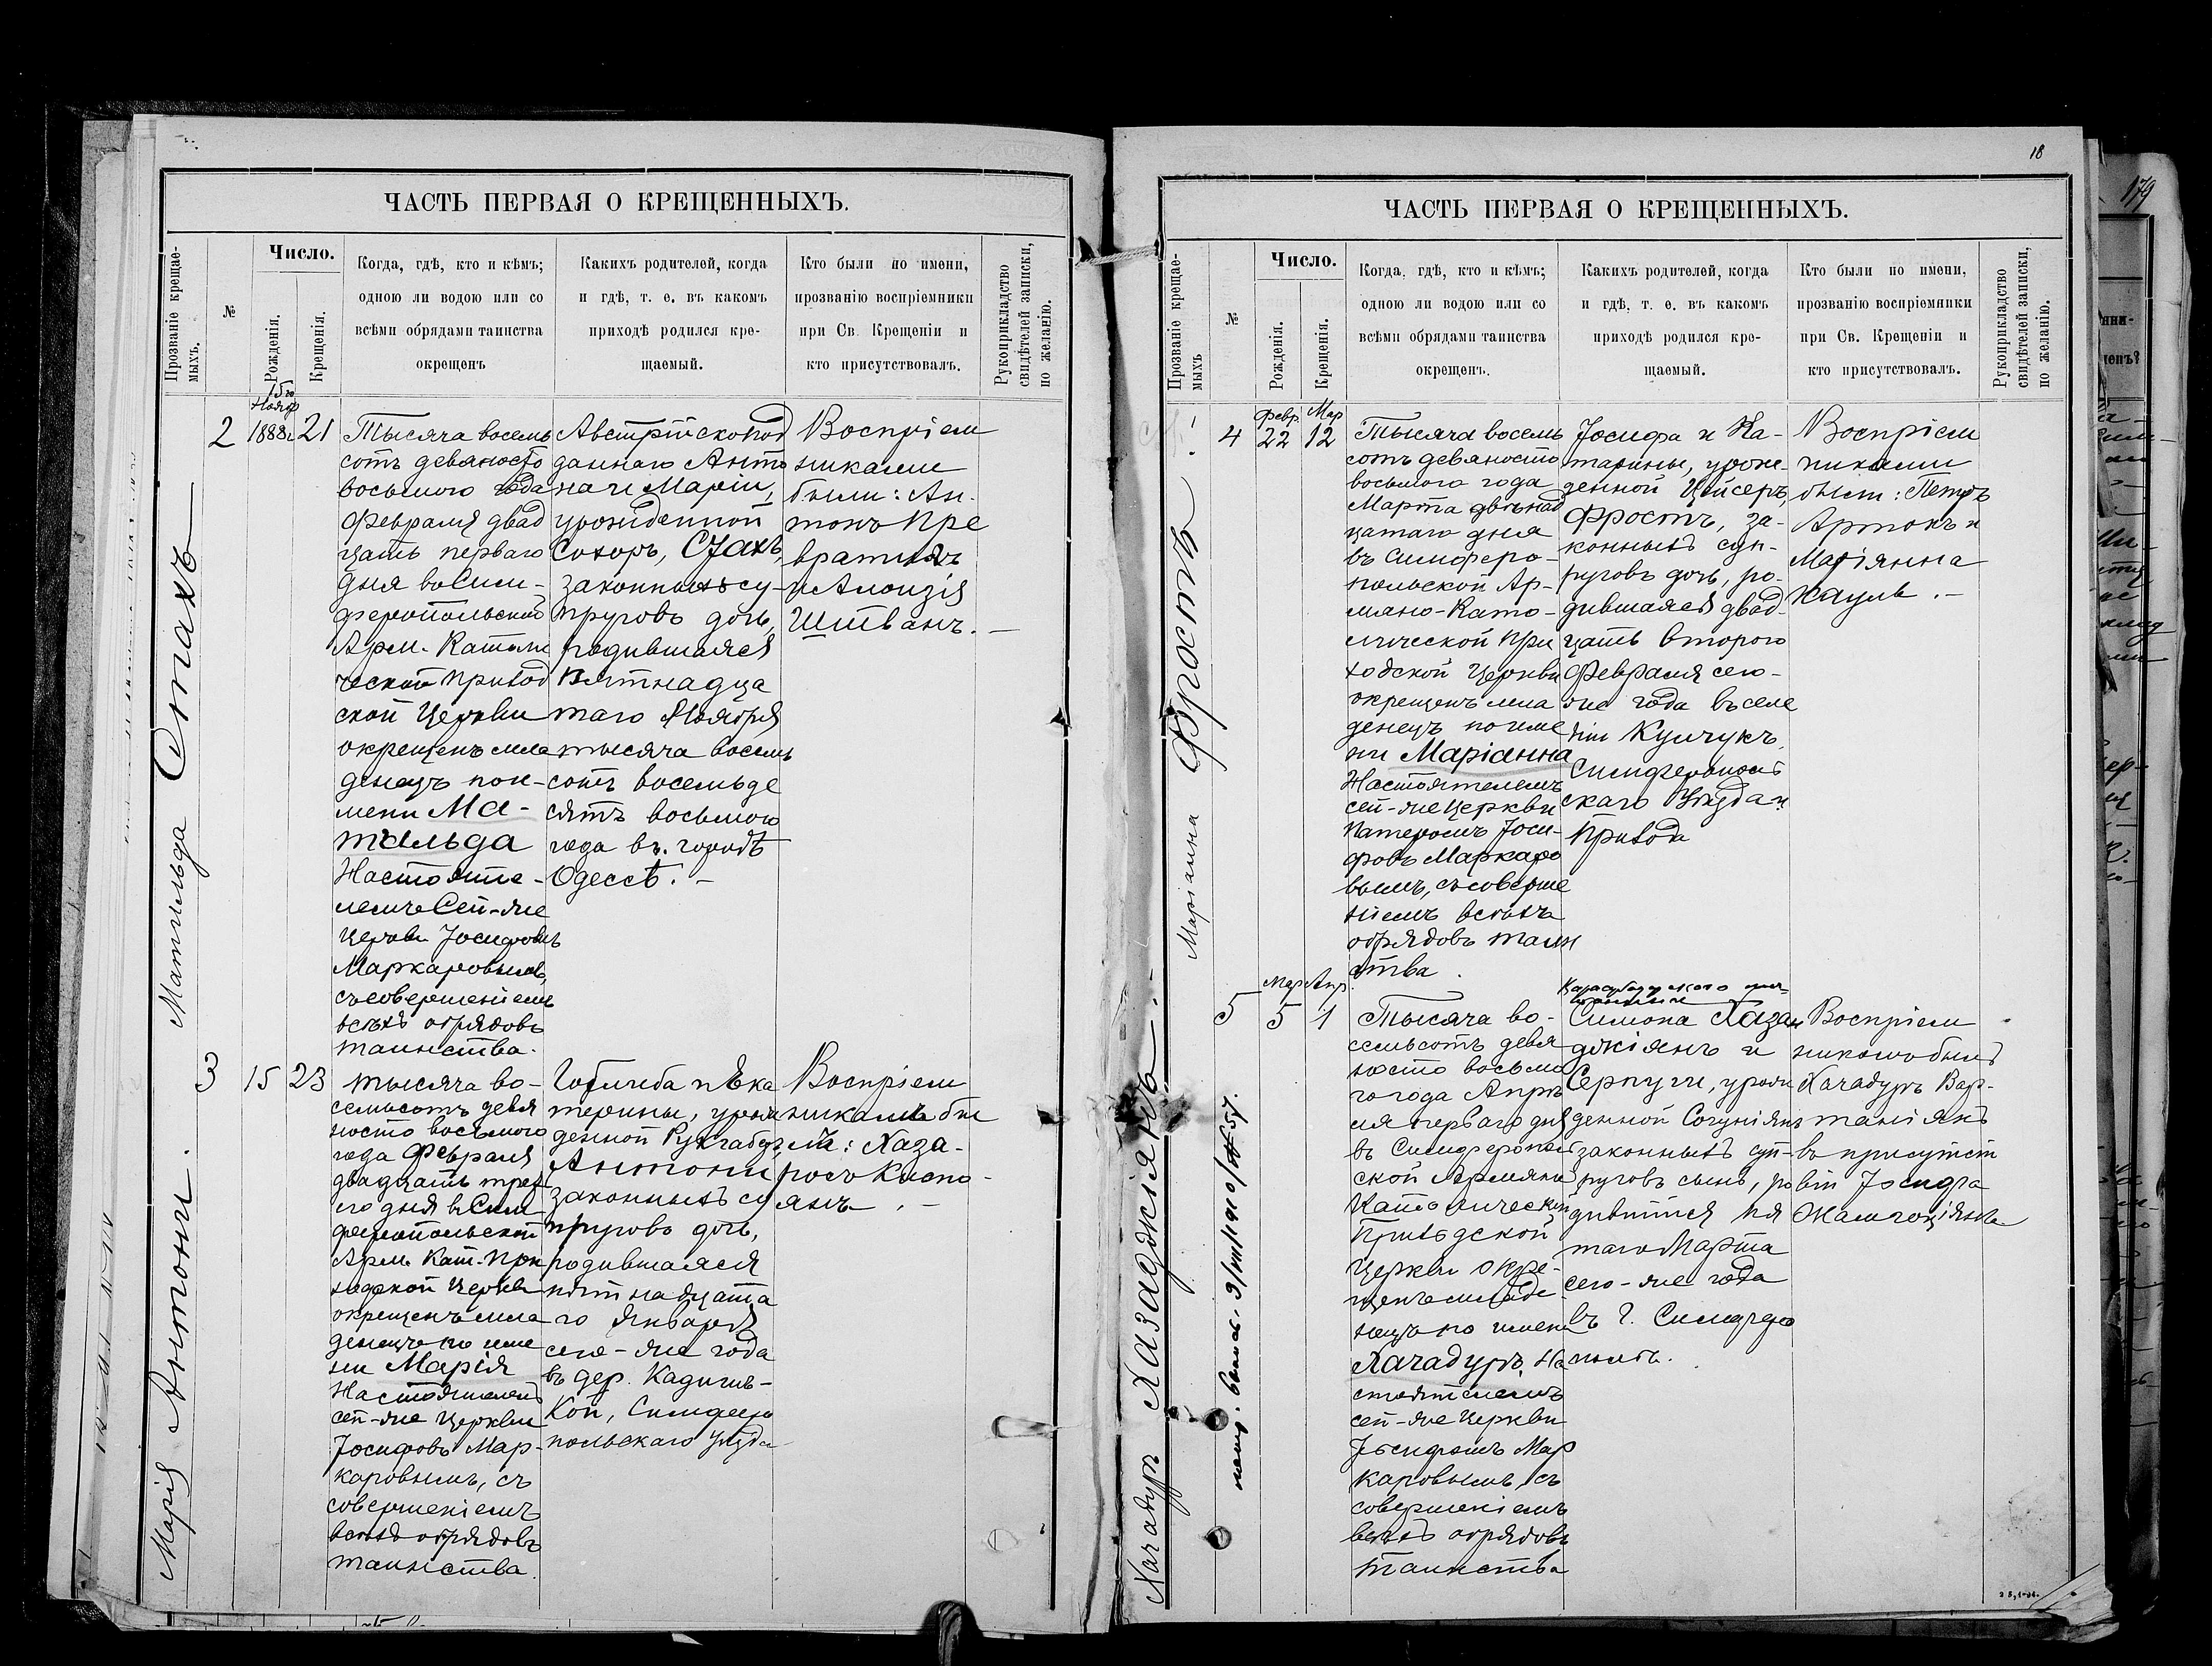 ЧАСТЬ ПЕРВАЯ О КРЕЩЕННЫХЪ.
Прозваніе крещае-
мыхъ.
№
Число.
Рожденія.
Крещенія.
Когда, гдѣ, кто и кѣмъ;
одною ли водою или со
всѣми обрядами таинства
окрещенъ
Какихъ родителей, когда
и гдѣ, т. е. въ какомъ
приходѣ родился кре-
щаемый.
Кто были по имени,
прозванію воспріемники
при Св. Крещеніи и
кто присутствовалъ.
Рукоприкладство
свидѣтелей записки,
по желанію.
Матильда Стахъ
2
15го
Нояб
1888г.
21
Тысяча восемь
сотъ девяносто
восьмого года
Февраля двад
цать перваго
дня въ Сим-
феропольской
Арм. Католи
ческой Приход
ской Церкви
окрещенъ мла
денецъ по и-
мени Ма-
тильда
Настояте-
лемъ сей-же
Церкви Іосифомъ
Маркаровымъ,
съ совершеніемъ
всѣхъ обрядовъ
таинства.
Австрійскопод
даннаго Анто
на и Маріи,
урожденной
Сохоръ, Стахъ,
законныхъ су-
пруговъ дочь,
родившаяся
Пятнадца
таго Ноября
тысяча восемь
сотъ восемьде
сятъ восьмого
года въ городѣ
Одессѣ. -
Воспріем
никами
были: Ан-
тонъ Пре
вратилъ
и Алоизія
Штванъ. -
Марія Антони.
3
15
23
тысяча во-
семьсотъ девя
носто восьмого
года Февраля
двадцать треть
его дня въ Сим
феропольской
Арм. Кат. При
ходской Церкви
окрещенъ мла
денецъ по име
ни Марія
Настоятелемъ
сей-же Церкви
Іосифомъ Мар-
каровымъ, съ
совершеніемъ
всѣхъ обрядовъ
таинства.
Готлиба и Ека
терины, урож
денной
Антони
законныхъ су
пруговъ дочь,
родившаяся
пятнадцата
го Января
сего-же года
въ дер. Кадыкъ-
Кой, Симферо
польскаго уѣзда
Воспріем
никами бы
ли: Хаза-
росъ Киспо-
янъ. -
18
ЧАСТЬ ПЕРВАЯ О КРЕЩЕННЫХЪ.
Прозваніе крещае-
мыхъ
№
Число.
Рожденія.
Крещенія.
Когда, гдѣ, кто и кѣмъ;
одною ли водою или со
всѣми обрядами таинства
окрещенъ.
Какихъ родителей, когда
и гдѣ, т. е. въ какомъ
приходѣ родился кре-
щаемый.
Кто были по имени,
прозванію воспріемники
при Св. Крещеніи и
кто присутствовалъ.
Рукоприкладство
свидѣтелей записки,
по желанію.
Маріанна Фростъ
4
Февр.
22
Мар
12
Тысяча восемь
сотъ девяносто
восьмого года
Марта двѣнад
цатаго дня
въ Симферо-
польской Ар-
мяно-Като-
лической При
ходской Церкви
окрещенъ мла
денецъ по име
ни Маріанна
Настоятелемъ
сей-же Церкви
Патеромъ Іоси-
фомъ Маркаро
вымъ, съ соверше
ніемъ всѣхъ
обрядовъ таин
ства.
Іосифа и Ка-
тарины, урож-
денной Цейсеръ,
Фростъ, за-
конныхъ суп-
руговъ дочь, ро-
дившаяся двад-
цать второго
Февраля сего-
же года въ селе
ніи Кулчукъ,
Симферополь
скаго Уѣзда и
Прихода
Воспріем
никами
были: Петръ
Артокъ и
Маріянна
Кауль. -
Хачадуръ Хазаджіянъ. -
5
Мар
5
Апр.
1
Тысяча во-
семьсотъ девя
носто восьмо
го года Апрѣ
ля перваго дня
въ Симферополь
ской Армяно
Католической
Приходской
Церкви окре-
щенъ младе
нецъ по имени
Хачадуръ, На
стоятелемъ
сей-же Церкви
Іосифомъ Мар
каровымъ, съ
совершеніемъ
всѣхъ обрядовъ
таинства
Карасубазарскаго мѣ-
щанина
Симона Хаза
джіянъ и
Серпуги, урож
денной Согуніянъ
законныхъ суп-
руговъ сынъ, ро
дившійся пя
таго Марта
сего-же года
въ г. Симферо
полѣ.
Воспріем
никомъ былъ
Хачадуръ Вар-
таніянъ
въ присутст
віи Іосифа
Жамгоціянъ
179